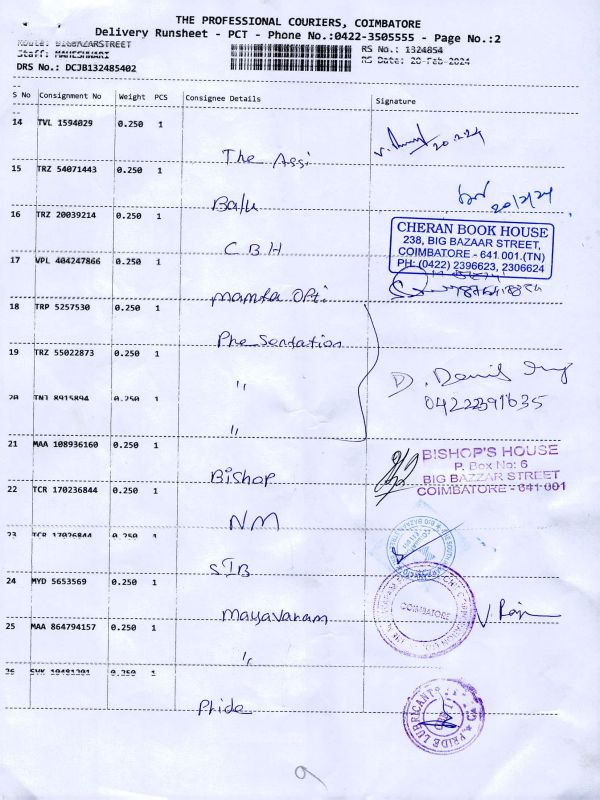 THE PROFESSIONAL COURIERS, COIMBATORE
Delivery Runsheet - PCT - Phone No.:0422-3505555 - Page No.:2
Route: BIGBAZARSTREET
Staff: MAHESHWARI
RS No.: 1324854
RS Date: 20-Feb-2024
DRS No.: DCJB132485402
S No Consignment No Weight PCS Consignee Details Signature
14 TVL 1594029 0.250 1
The Assi
20.2.24
15 TRZ 54071443 0.250 1
Balu
20/2/24
16 TRZ 20039214 0.250 1
C.B.H
CHERAN BOOK HOUSE
238, BIG BAZAAR STREET,
COIMBATORE - 641 001.(TN)
PH: (0422) 2396623, 2306624
17 VPL 404247866 0.250 1
Mamta Opti
18 TRP 5257530 0.250 1
Phe Sentation
19 TRZ 55022873 0.250 1
"
D.
04222391635
20 TNJ 8915894 0.250 1
"
21 MAA 108936160 0.250 1
Bishop
BISHOP'S HOUSE
P. Box No: 6
BIG BAZZAR STREET
COIMBATORE - 641 001
22 TCR 170236844 0.250 1
NM
23 TCR 0.250 1
SIB
24 MYD 5653569 0.250 1
Mayavaram
COIMBATORE
V. Raja
25 MAA 864794157 0.250 1
"
26 0.250 1
Pride
PRIDE LUBRICANTS